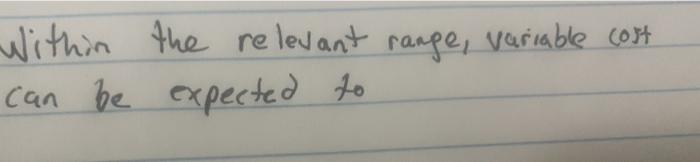 Within the relevant range, variable cost
can be expected to